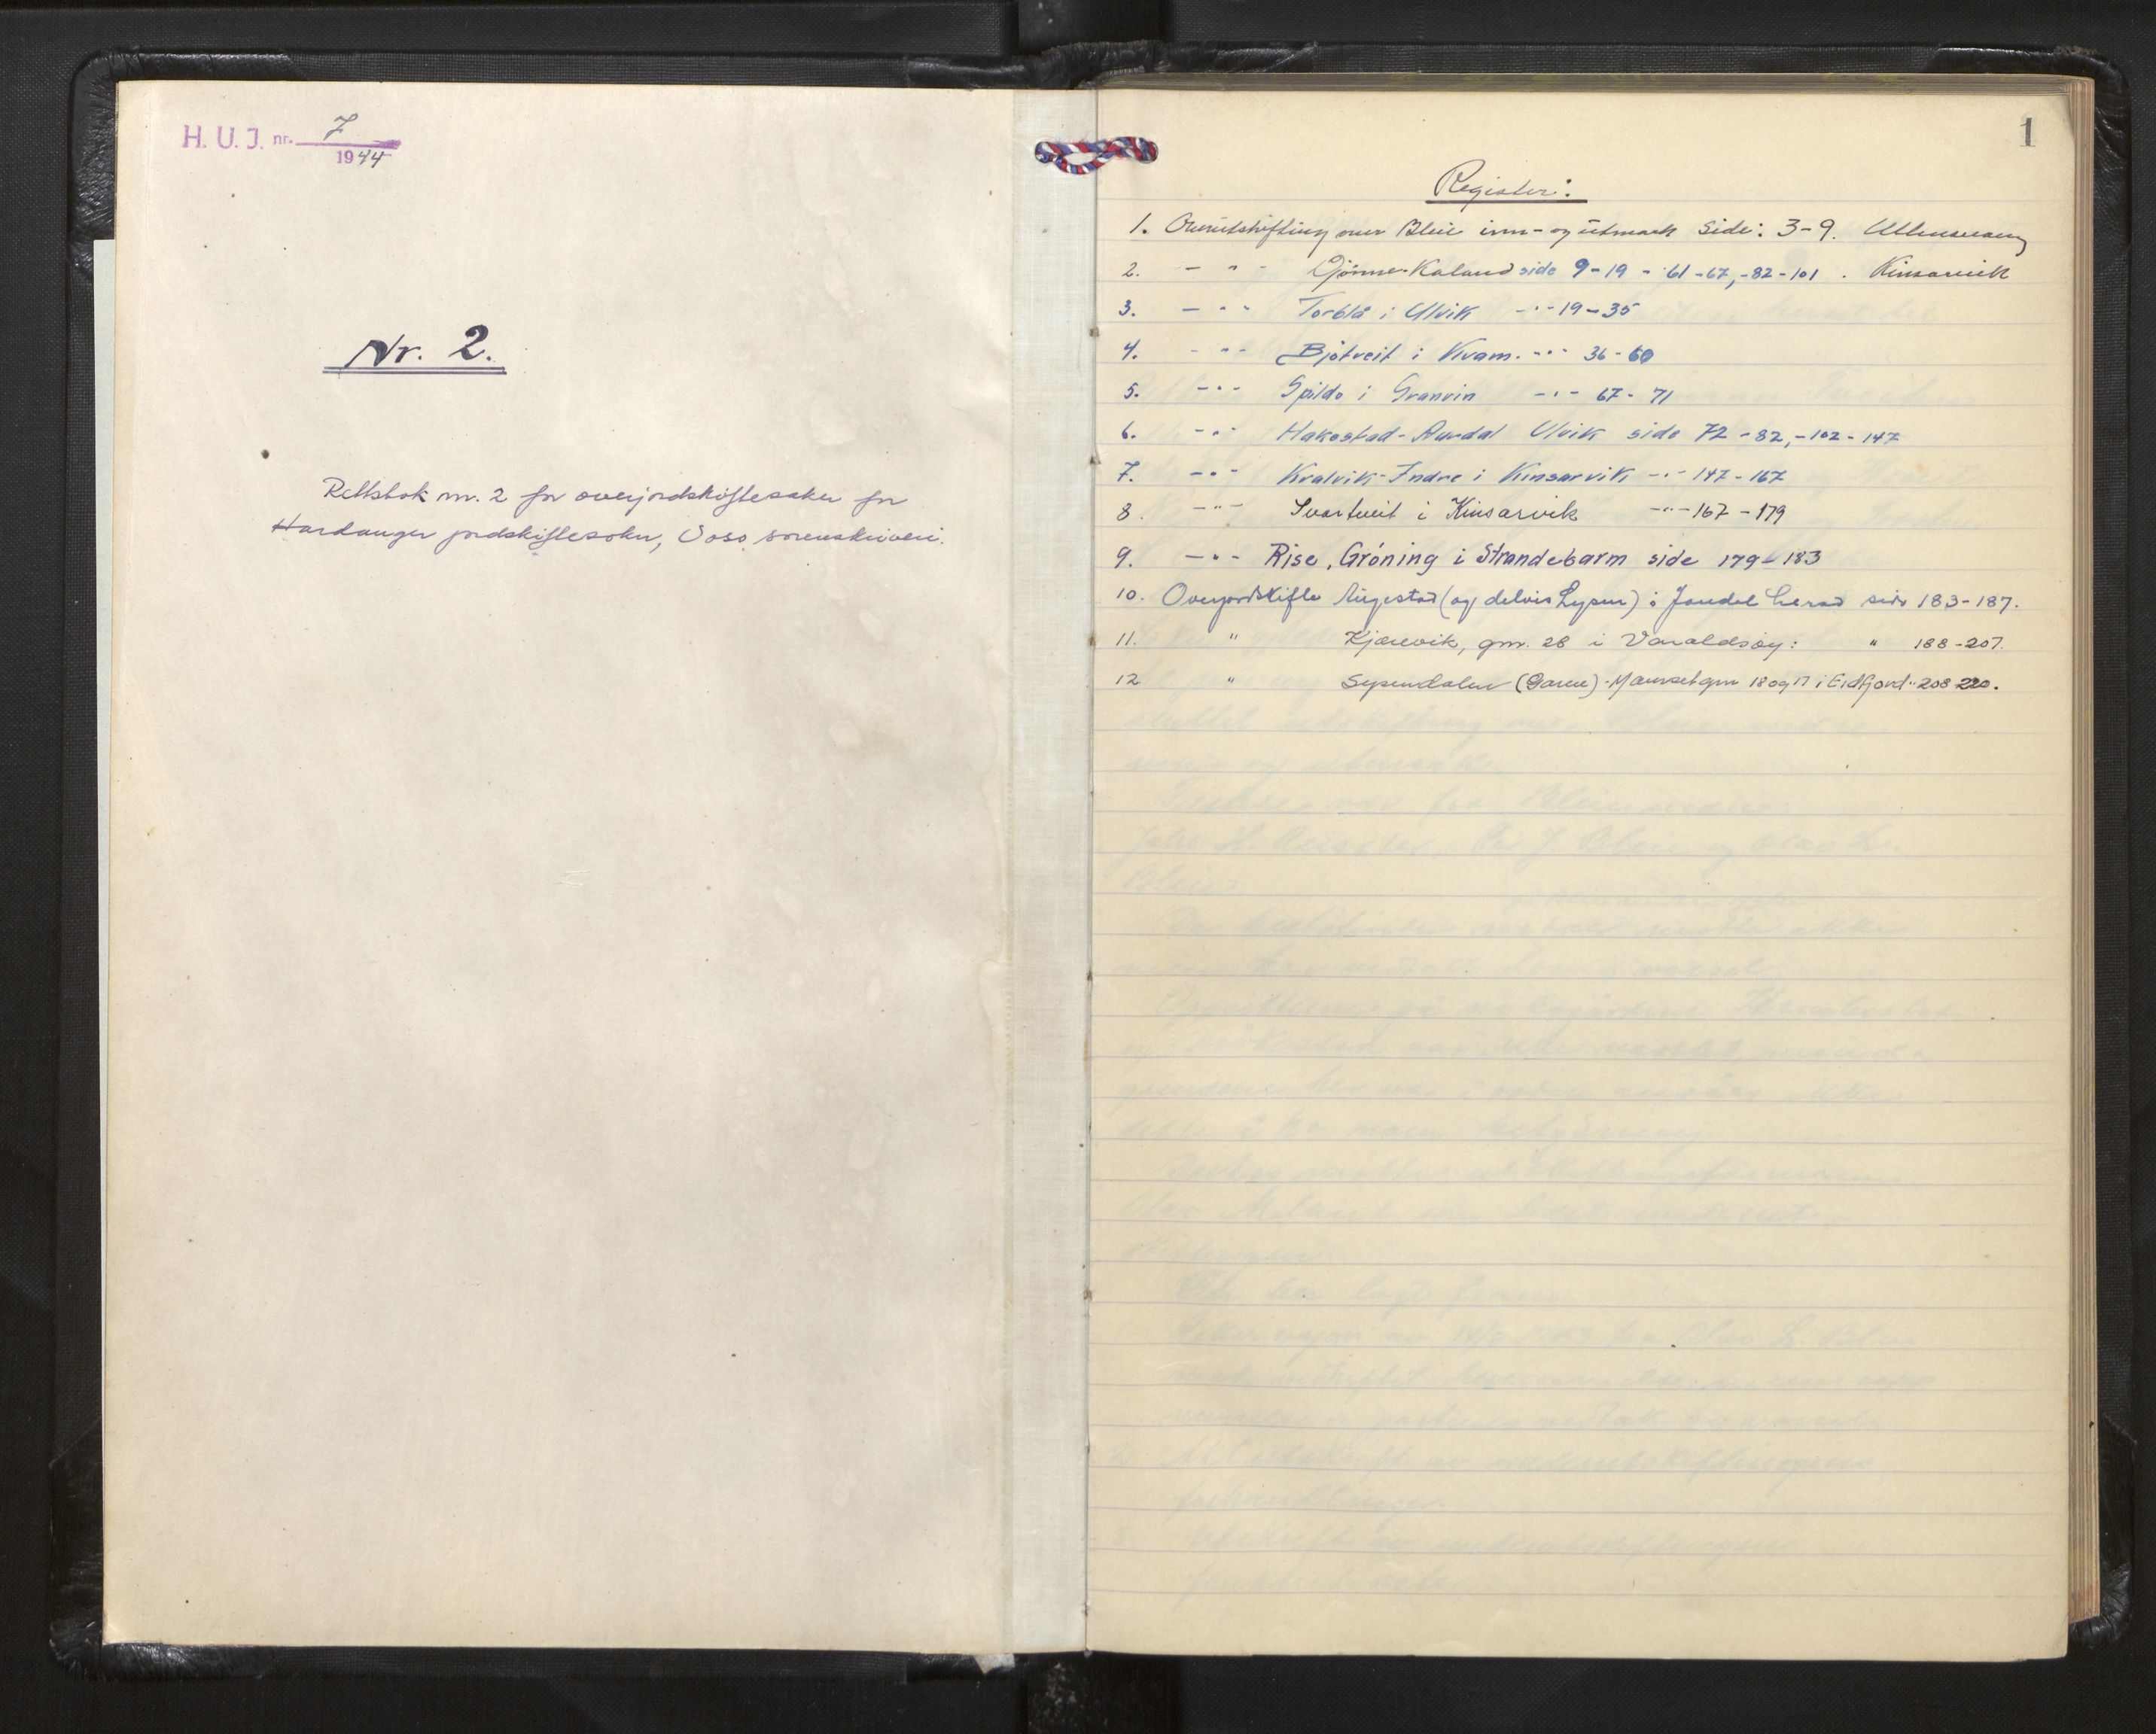 H. U. J. nr. 7
1944
Nr. 2.
Rettsbok nr. 2 for overjordskiftesaker for
Hardanger jordskiftesokn, Voss sorenskriveri.
1
Register:
1. Overutskifting over Bleie inn- og utmark Side: 3-9. Ullensvang
2. - " - Djønne-Kaland side 9-19 - 61-67,-82-101. Kinsarvik
3. - " - Torblå i Ulvik -"- 19-35
4. - " - Bjotveit i Kvam. -"- 36-60
5. -"- Spildo i Granvin -"- 67-71
6. -"- Hakestad-Aurdal Ulvik side 72-82,-102-147
7. -"- Kvalvik-Indre i Kinsarvik -"- 147-167
8. -"- Svartveit i Kinsarvik -"- 167-179
9. -"- Rise, Gróning i Strandebarm side 179-183
10. Overjordskifte Augestad (og delvis Lysen) i Jondal herad side 183-187.
11. " Kjærevik, gnr. 28 i Varaldsøy: " 188-207.
12 " Sysendalen (Garen)-Maurset gnr 18 og 17 i Eidfjord " 208-220.